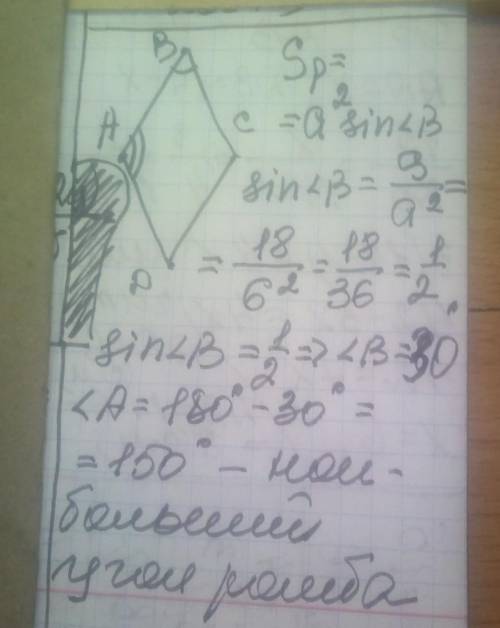 B
Sр=
A
C
= a² sin∠B
sin∠B = S/a² =
D
= 18/6² = 18/36 = 1/2
sin∠B = 1/2 => ∠B = 30°
∠A = 180° - 30° =
= 150° - наи-
больший
угол ромба